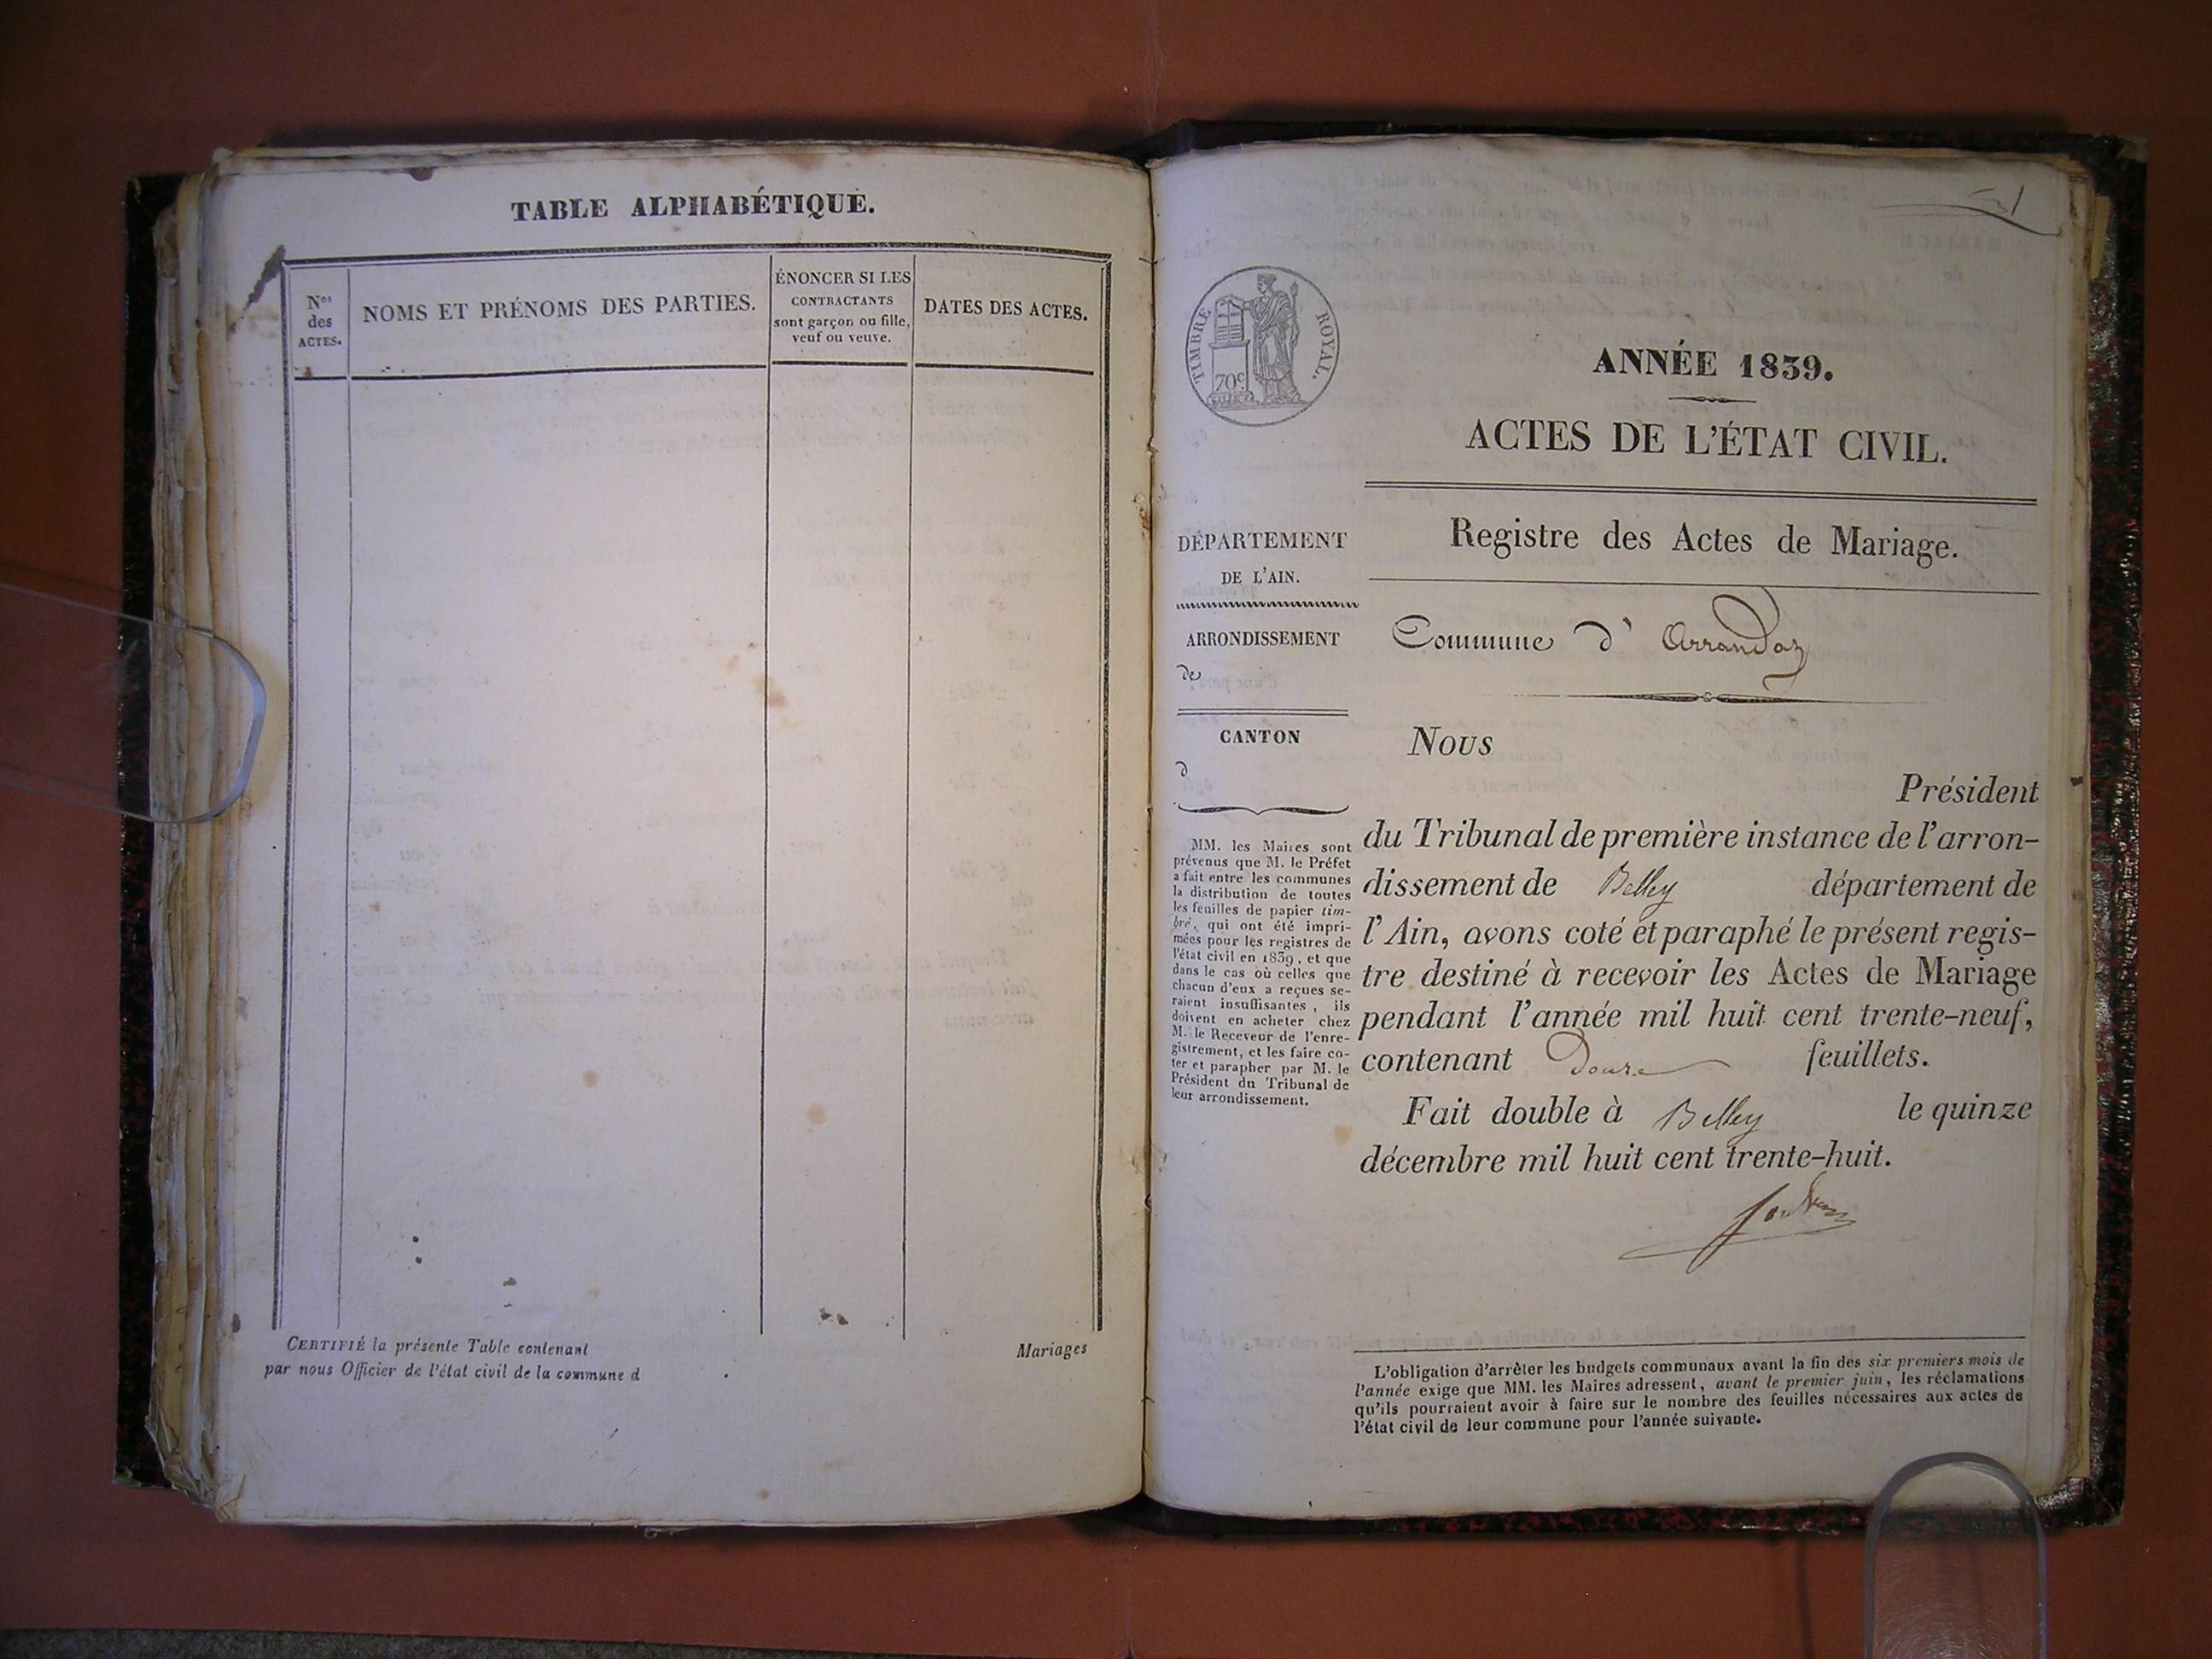 TABLE ALPHABÉTIQUE.
Nos
des
ACTES.
NOMS ET PRÉNOMS DES PARTIES.
ÉNONCER SI LES
CONTRACTANTS
sont garçon ou fille,
veuf ou veuve.
DATES DES ACTES.
CERTIFIÉ la présente Table contenant
Mariages
par nous Officier de l'état civil de la commune d
1
TIMBRE ROYAL.
70c
ANNÉE 1839.
ACTES DE L'ÉTAT CIVIL.
Registre des Actes de Mariage.
DÉPARTEMENT
DE L'AIN.
ARRONDISSEMENT
de
CANTON
d
MM. les Maires sont
prévenus que M. le Préfet
a fait entre les communes
la distribution de toutes
les feuilles de papier tim-
bré, qui ont été impri-
mées pour les registres de
l'état civil en 1839, et que
dans le cas où celles que
chacun d'eux a reçues se-
raient insuffisantes, ils
doivent en acheter chez
M. le Receveur de l'enre-
gistrement, et les faire co-
ter et parapher par M. le
Président du Tribunal de
leur arrondissement.
Commune d' Arrandaz
Nous
Président
du Tribunal de première instance de l'arron-
dissement de Belley département de
l'Ain, avons coté et paraphé le présent regis-
tre destiné à recevoir les Actes de Mariage
pendant l'année mil huit cent trente-neuf,
contenant Douze feuillets.
Fait double à Belley le quinze
décembre mil huit cent trente-huit.
L'obligation d'arrêter les budgets communaux avant la fin des six premiers mois de
l'année exige que MM. les Maires adressent, avant le premier juin, les réclamations
qu'ils pourraient avoir à faire sur le nombre des feuilles nécessaires aux actes de
l'état civil de leur commune pour l'année suivante.